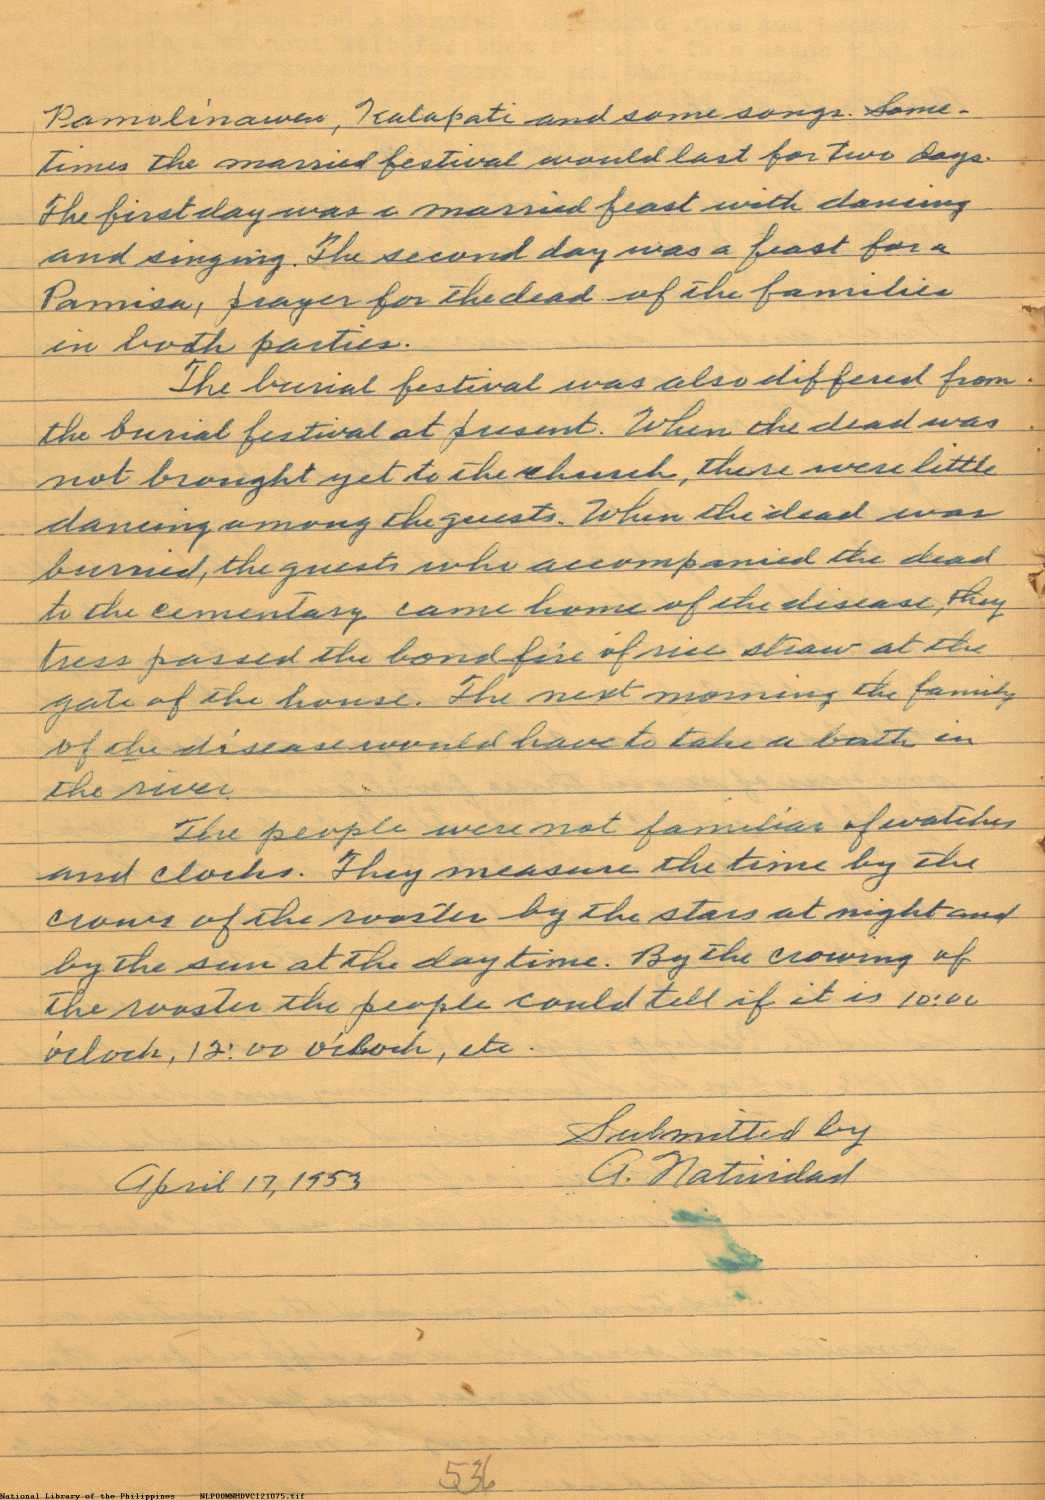 Pamolinawen, Kalapati and some songs. Some-
times the married festival would last for two days.
The first day was a married feast with dancing
and singing. The second day was a feast for a
Pamisa, prayer for the dead of the families
in both parties.
The burial festival was also differed from
the burial festival at present. When the dead was
not brought yet to the church, there were little
dancing among the guests. When the dead was
burried, the guests who accompanied the dead
to the cementary came home of the disease, they
tress passed the bond fire of rice straw at the
gate of the house. The next morning the family
of the disease would have to take a bath in
the river
The people were not familiar of watches
and clocks. They measure the time by the
crows of the rooster by the stars at night and
by the sun at the daytime. By the crowing of
the rooster the people could tell if it is 10:00
o'clock, 12:00 o'clock, etc.
Submitted by
April 17, 1953 A. Natividad
536
National Library of the Philippines NLPOOMNHDVC121075.tif